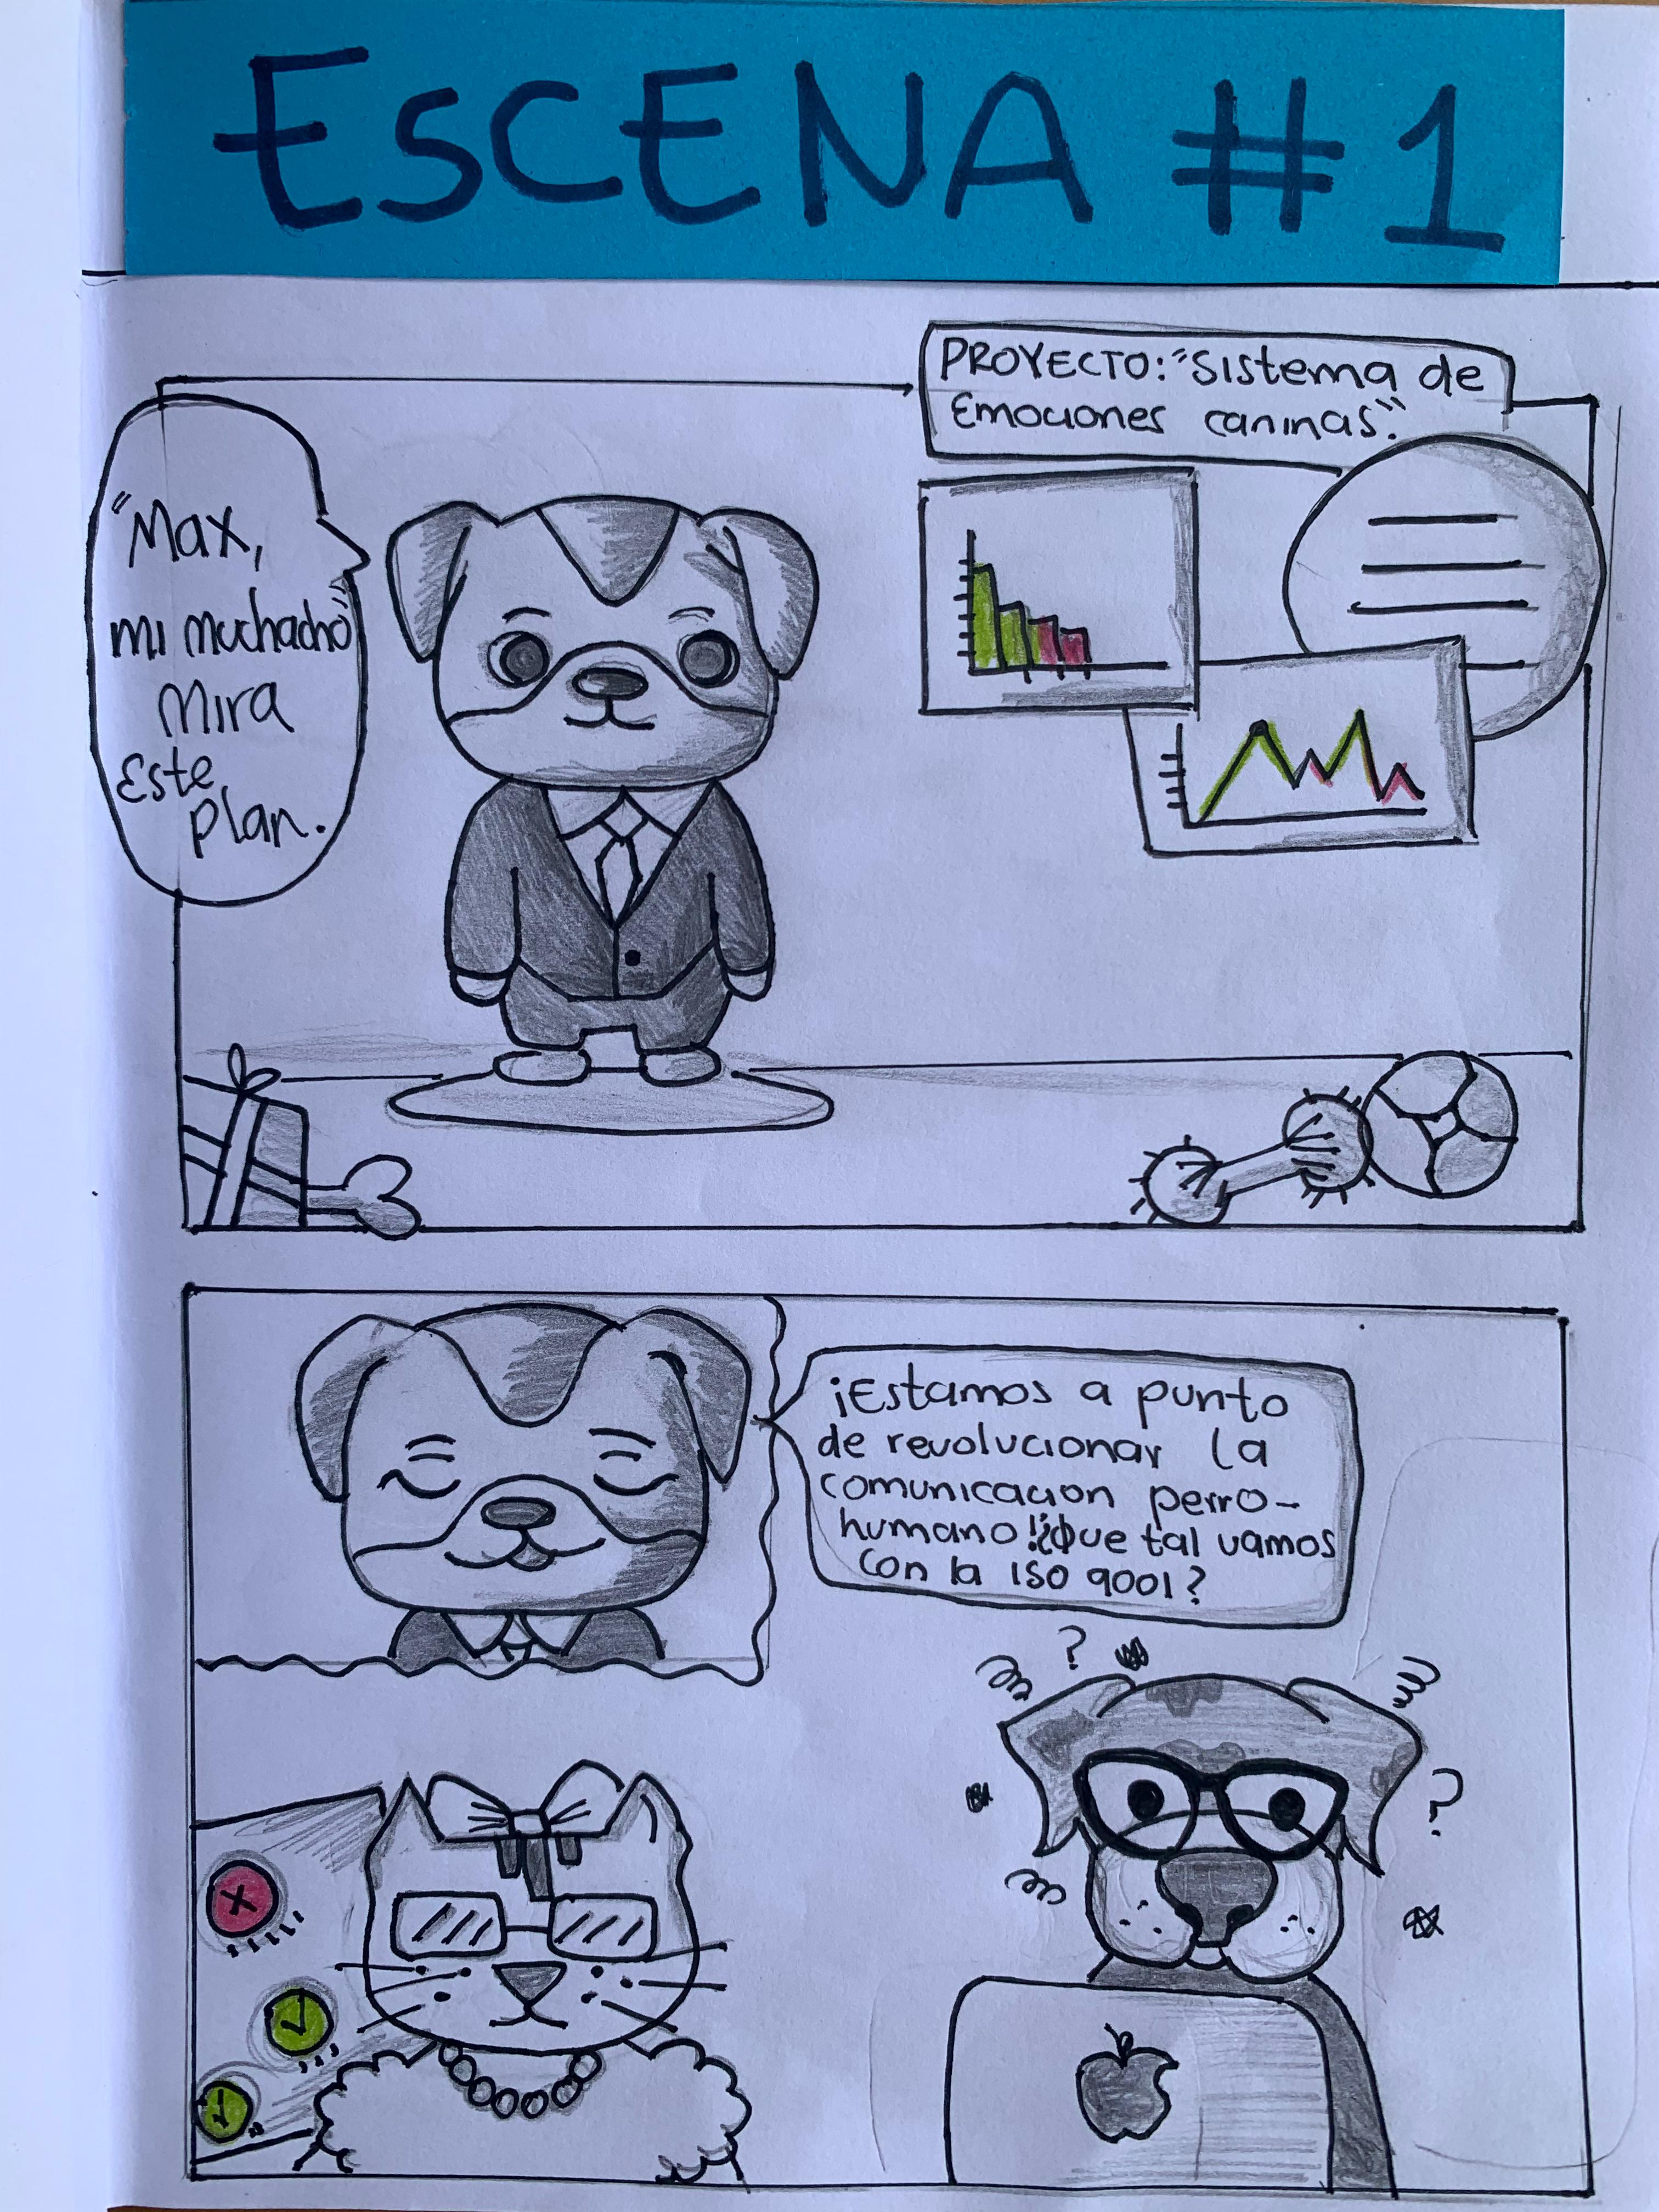 ESCENA #1
PROYECTO: "Sistema de
Emociones caninas".
"Max,
mi muchacho"
Mira
Este
plan.
¡Estamos a punto
de revolucionar la
comunicacion perro-
humano!¿Que tal vamos
con la ISO 9001?
?
?